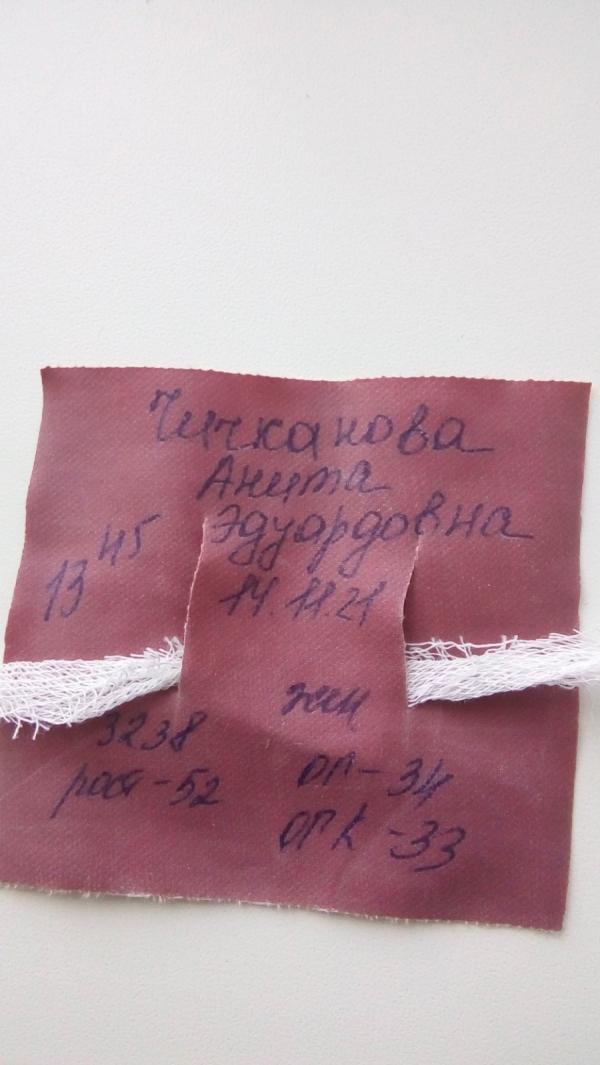 Чичканова
Анита
Эдуардовна
13 45
14.11.21
жен
3238
рост-52
ОГ-34
ОГК-33